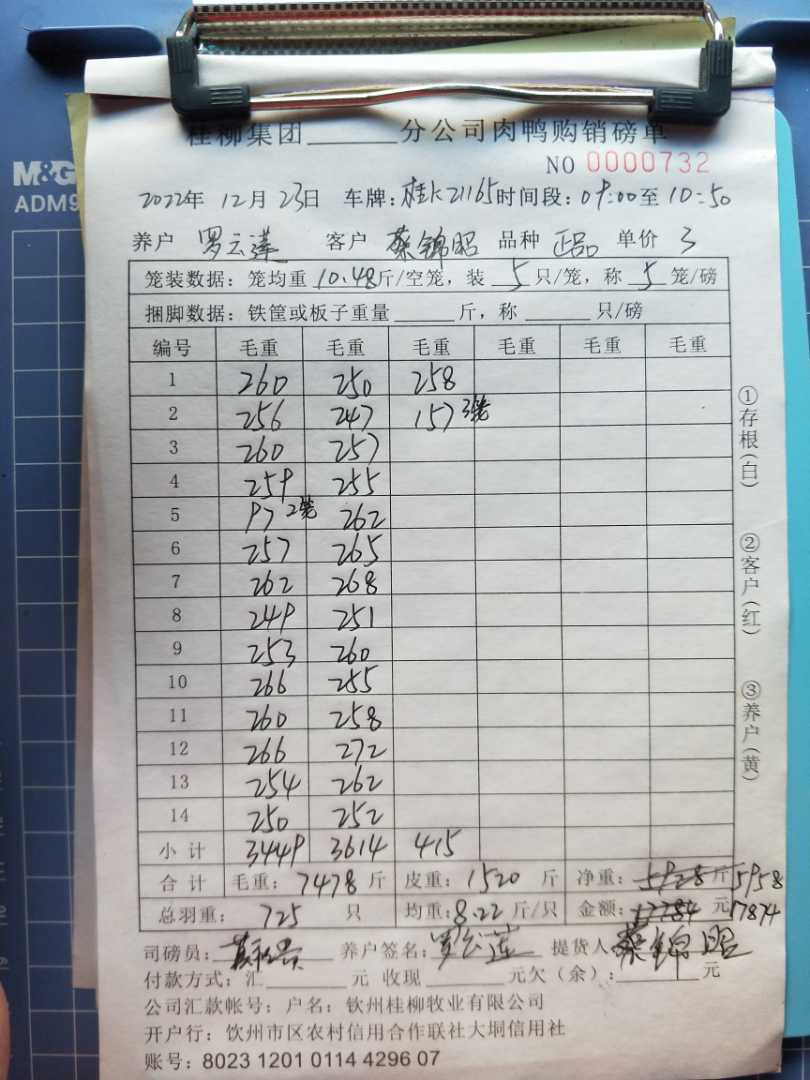 M&G
ADM9
桂柳集团______分公司肉鸭购销磅单
NO 0000732
2022年 12月 23日 车牌:桂K21165 时间段:09:00至 10:50
养户 罗云莲 客户 蔡锦昭 品种 正品 单价 3
笼装数据:笼均重 10.48斤/空笼,装 5 只/笼,称 5 笼/磅
捆脚数据:铁筐或板子重量______斤,称______只/磅
编号 毛重 毛重 毛重 毛重 毛重 毛重
1 260 250 258
2 256 247 157 3笼
3 260 257
4 259 255
5 97 2笼 262
6 257 265
7 262 268
8 249 251
9 253 260
10 266 255
11 260 258
12 266 272
13 254 262
14 250 252
小计 3449 3614 415
合计 毛重:7478斤 皮重:1520 斤 净重:5928斤 5958
总羽重:725 只 均重:8.22斤/只 金额:17784元 17874
司磅员: 养户签名:罗云莲 提货人 蔡锦昭
付款方式:汇______元 收现______元欠(余):______元
公司汇款帐号:户名:钦州桂柳牧业有限公司
开户行:钦州市区农村信用合作联社大垌信用社
账号:8023 1201 0114 4296 07
①存根(白)
②客户(红)
③养户(黄)